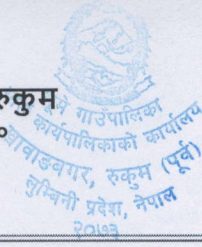 रुकुम
गाउँपालिका
कार्यपालिकाको कार्यालय
रुकुम (पूर्व)
लुम्बिनी प्रदेश, नेपाल
२०७३